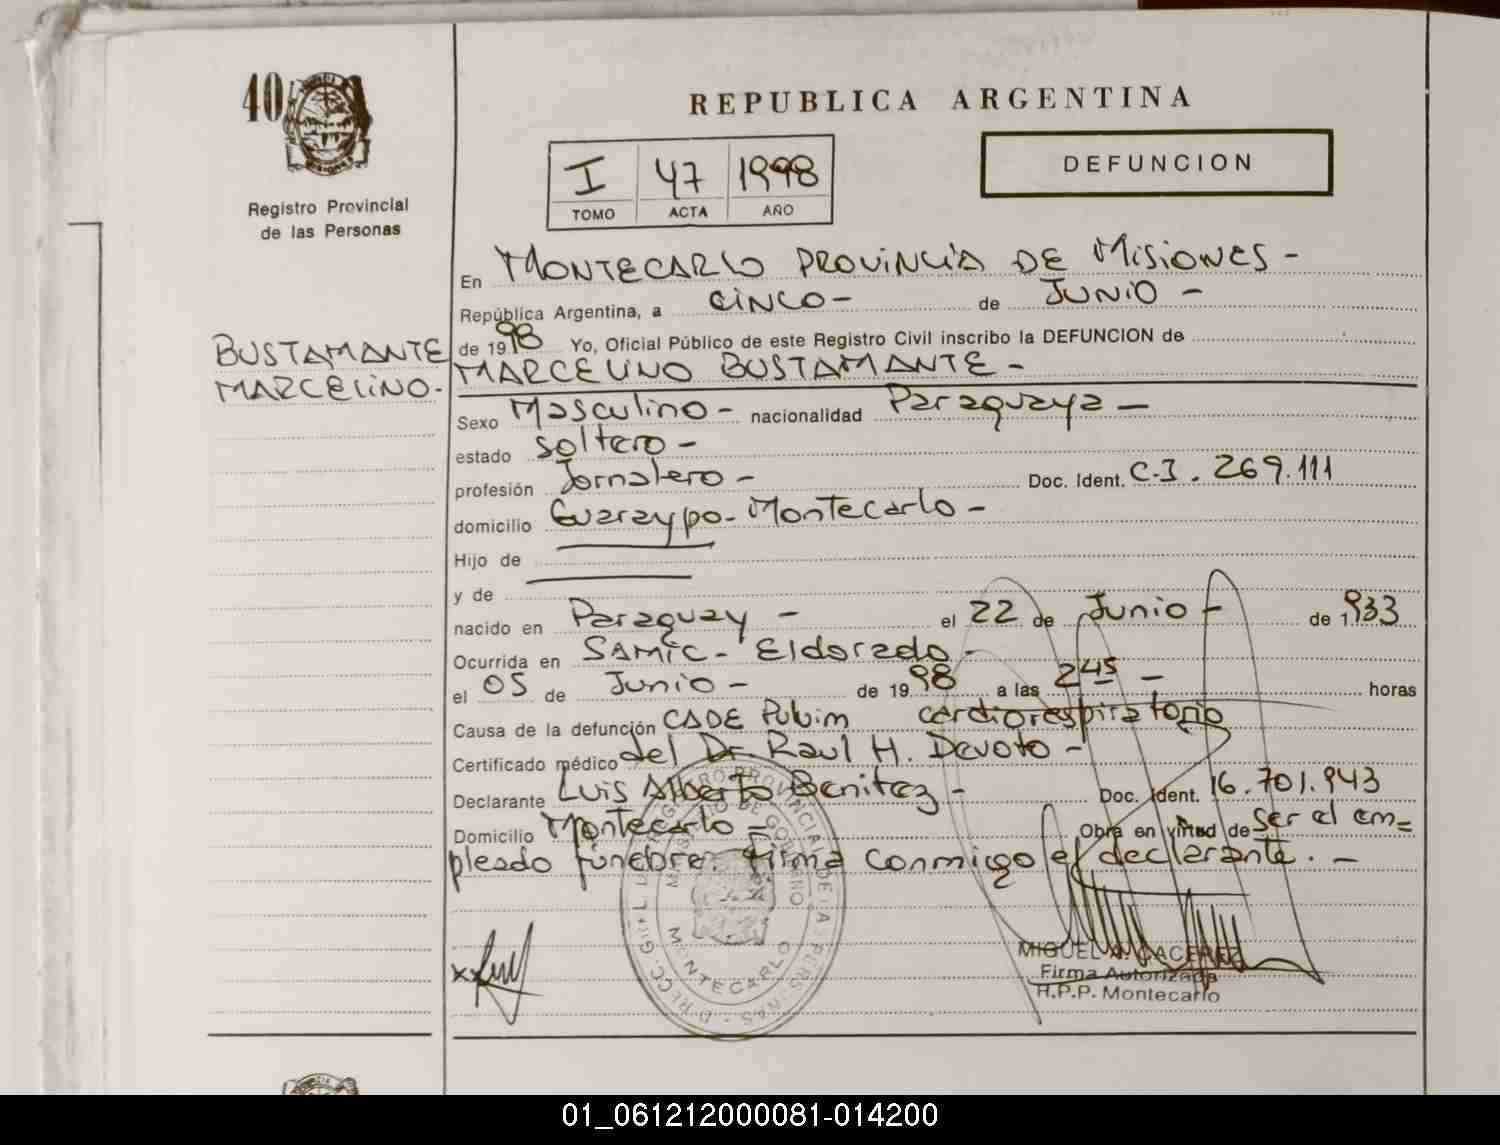 40
REPUBLICA ARGENTINA
DEFUNCION
I 47 1998
TOMO ACTA AÑO
Registro Provincial
de las Personas
En MONTECARLO PROVINCIA DE MISIONES -
República Argentina, a CINCO - de JUNIO -
de 1998 Yo, Oficial Público de este Registro Civil inscribo la DEFUNCION de
BUSTAMANTE
MARCELINO.
MARCELINO BUSTAMANTE -
Sexo Masculino - nacionalidad Paraguaya -
estado soltero -
profesión Jornalero - Doc. Ident. C-I. 269.111
domicilio Guaraypo - Montecarlo -
Hijo de
y de
nacido en Paraguay - el 22 de Junio - de 1.933
Ocurrida en SAMIC - Eldorado -
el 05 de Junio - de 1998 a las 2 45 - horas
Causa de la defunción cardiorespiratorio
Certificado médico del Dr. Raul H. Devoto -
Declarante Luis Alberto Benitez - Doc. Ident. 16.701.943
Domicilio Montecarlo - Obra en virtud de ser el em=
pleado funebre. Firma conmigo el declarante. -
MONTECARLO
MIGUEL A. CACERES
Firma Autorizada
R.P.P. Montecarlo
01_061212000081-014200